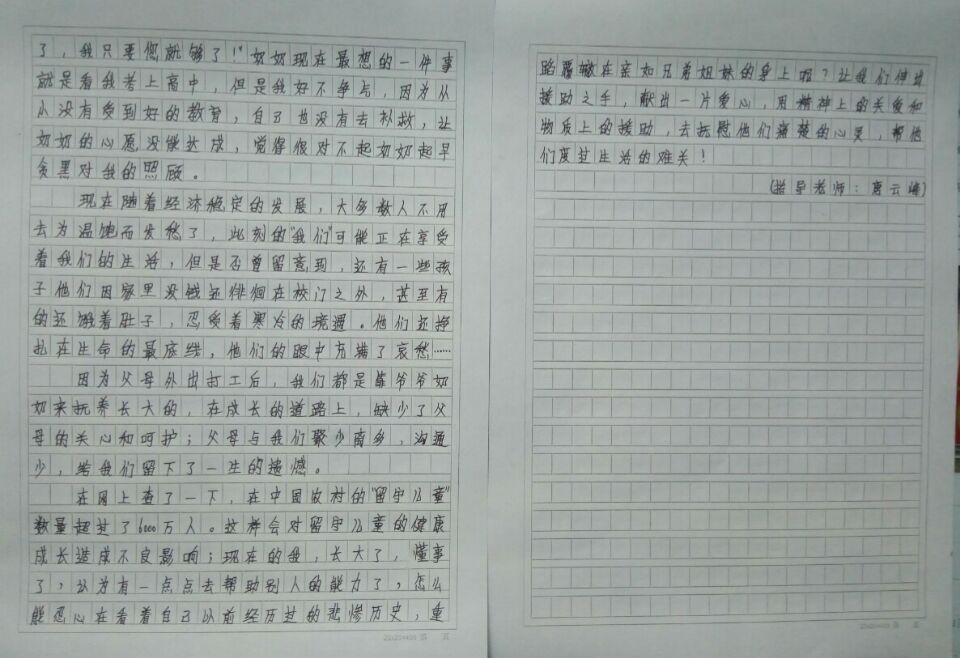 了，我只要您就够了！"奶奶现在最想的一件事
就是看我考上高中，但是我好不争气，因为从
小没有受到好的教育，自己也没有去补救，让
奶奶的心愿没能达成，觉得很对不起奶奶起早
贪黑对我的照顾。
现在随着经济稳定的发展，大多数人不用
去为温饱而发愁了，此刻的"我们"可能正在享受
着我们的生活，但是否曾留意到，还有一些孩
子他们因家里没钱还徘徊在校门之外，甚至有
的还饿着肚子，忍受着寒冷的境遇。他们还挣
扎在生命的最底线，他们的眼中充满了哀愁……
因为父母外出打工后，我们都是靠爷爷奶
奶来抚养长大的，在成长的道路上，缺少了父
母的关心和呵护；父母与我们聚少离多，沟通
少，给我们留下了一生的遗憾。
在网上查了一下，在中国农村的"留守儿童"
数量超过了6000万人。这样会对留守儿童的健康
成长造成不良影响；现在的我，长大了，懂事
了，认为有一点点去帮助别人的能力了，怎么
能忍心在看着自己以前经历过的悲惨历史，重
蹈覆辙在亲如兄弟姐妹的身上呢？让我们伸出
援助之手，献出一片爱心，用精神上的关爱和
物质上的援助，去抚慰他们痛楚的心灵，帮他
们度过生活的难关！
（指导老师：唐云峰）
22x20=440 第 页
22x20=440 第 页